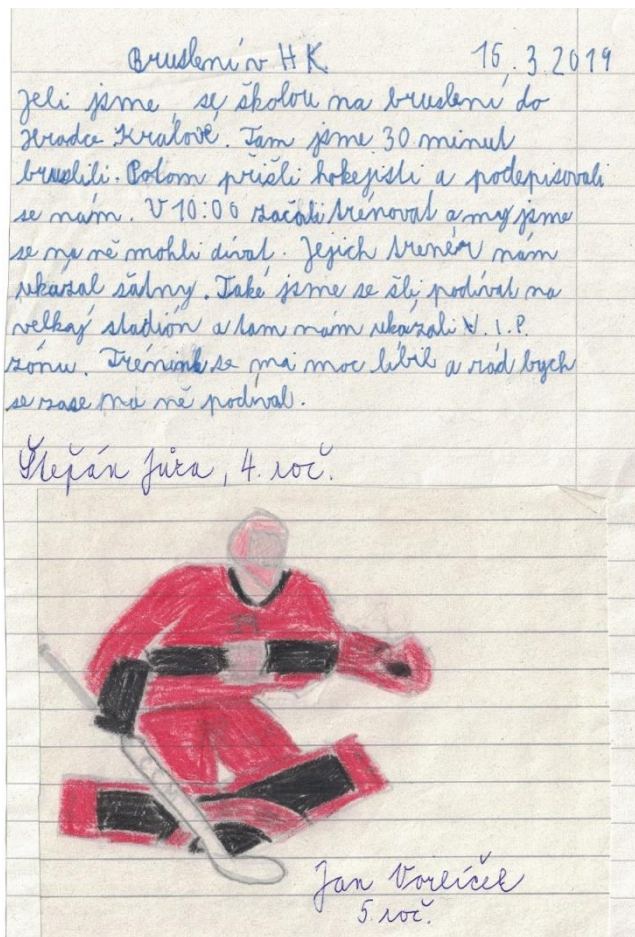 Bruslení v HK 15.3.2019
Jeli jsme se školou na bruslení do
Hradce Králové. Tam jsme 30 minut
bruslili. Potom přišli hokejisti a podepisovali
se nám. V 10:00 začali trénovat a my jsme
se na ně mohli dívat. Jejich trenér nám
ukázal šatny. Také jsme se šli podívat na
velkaj stadión a tam nám ukázali V.I.P.
zónu. Trénink se mi moc líbil a rád bych
se zase na ně podíval.
Štěpán Jůza, 4. roč.
Jan Vorlíček
5. roč.